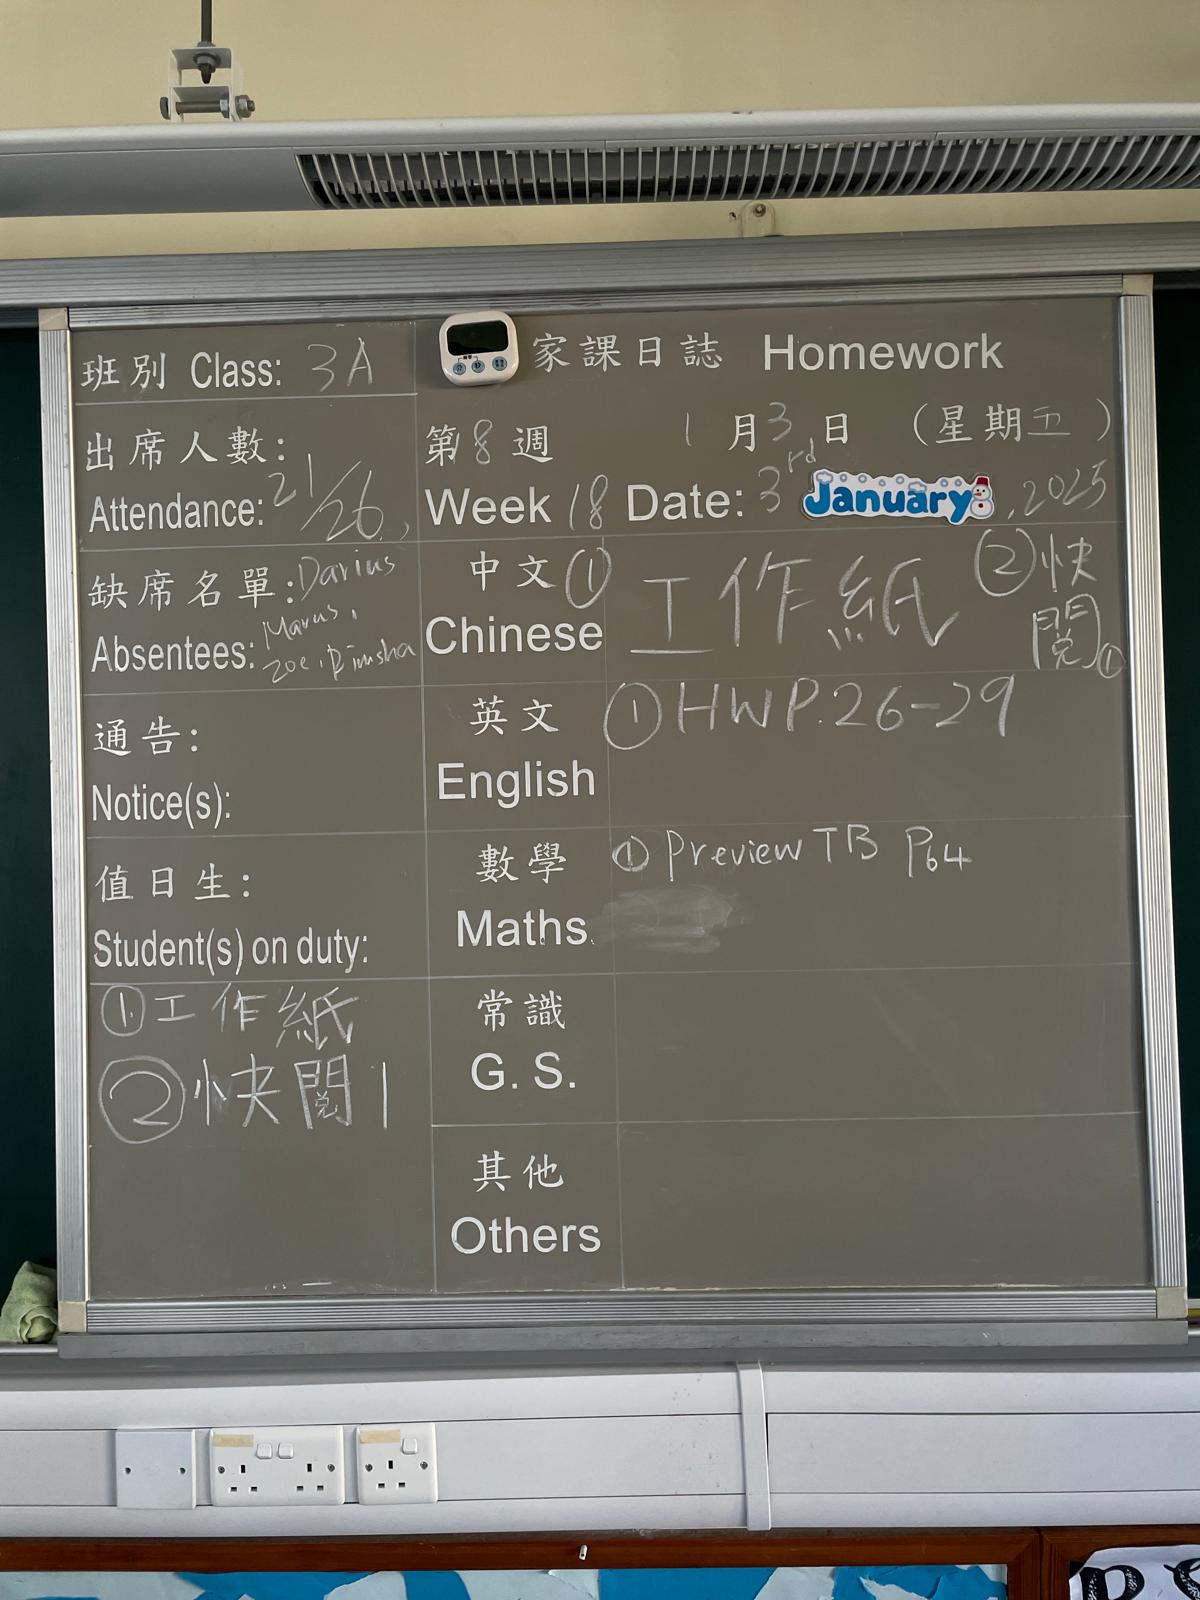 班別 Class: 3A
出席人數:
Attendance: 21/26
缺席名單: Darius
Absentees: Marus,
Zoe, Dimsha
通告:
Notice(s):
值日生:
Student(s) on duty:
① 工作紙
② 快閱1
家課日誌 Homework
第8週 1月3日 (星期五)
Week 18 Date: 3rd January, 2025
中文 ① 工作紙 ②快
閱①
Chinese
英文 ① HW P.26-29
English
數學 ① Preview TB P64
Maths
常識
G. S.
其他
Others